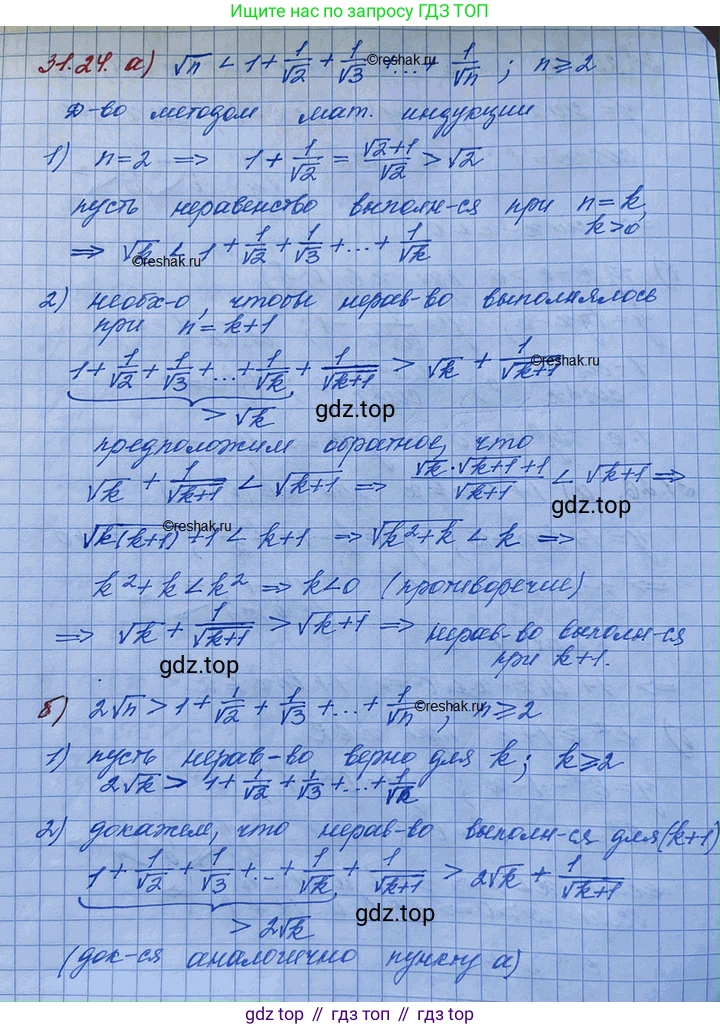 Ищите нас по запросу ГДЗ ТОП
31.24. а) √n < 1 + 1/√2 + 1/√3 + ... + 1/√n ; n ⩾ 2
©reshak.ru
Д-во методом мат. индукции
1) n = 2 ⇒ 1 + 1/√2 = (√2+1)/√2 > √2
пусть неравенство выполн-ся при n = k,
k > 0
⇒ √k < 1 + 1/√2 + 1/√3 + ... + 1/√k
©reshak.ru
2) необх-о, чтобы нерав-во выполнялось
при n = k+1
1 + 1/√2 + 1/√3 + ... + 1/√k + 1/√(k+1) > √k + 1/√(k+1)
©reshak.ru
> √k
gdz.top
предположим обратное, что
√k + 1/√(k+1) < √(k+1) ⇒ (√k · √(k+1) + 1)/√(k+1) < √(k+1) ⇒
gdz.top
©reshak.ru
√(k(k+1)) + 1 < k+1 ⇒ √(k²+k) < k ⇒
k² + k < k² ⇒ k < 0 (противоречие)
⇒ √k + 1/√(k+1) > √(k+1) ⇒ нерав-во выполн-ся
при k+1.
gdz.top
б) 2√n > 1 + 1/√2 + 1/√3 + ... + 1/√n , n ⩾ 2
©reshak.ru
1) пусть нерав-во верно для k; k ⩾ 2
2√k > 1 + 1/√2 + 1/√3 + ... + 1/√k
2) докажем, что нерав-во выполн-ся для (k+1)
1 + 1/√2 + 1/√3 + ... + 1/√k + 1/√(k+1) > 2√k + 1/√(k+1)
> 2√k
gdz.top
(док-ся аналогично пункту а)
gdz.top // gdz.top // gdz.top